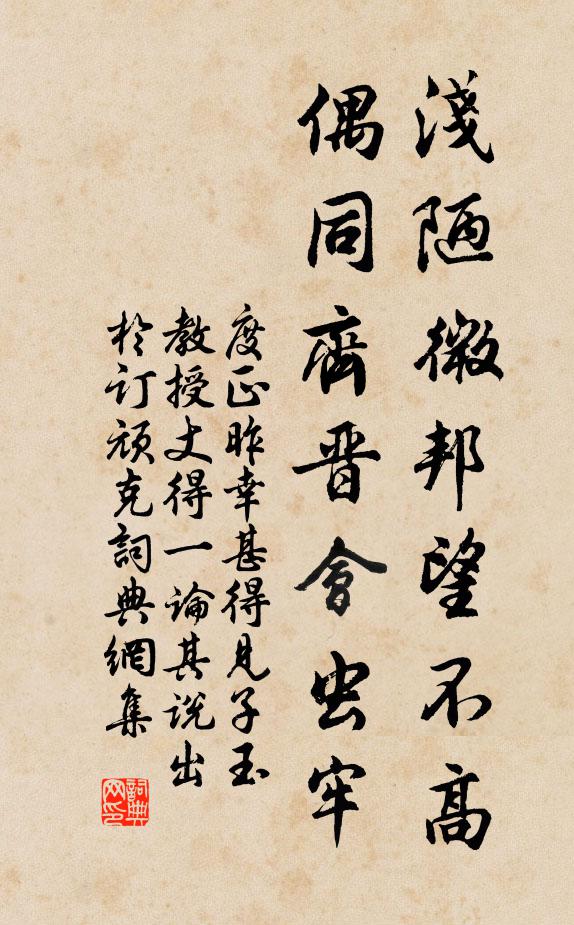 淺陋微邦望不高
偶同齊晋會虫牢
度正昨幸甚得見子玉
教授丈得一論其说出
於訂頑克詞典網集
詞典网印